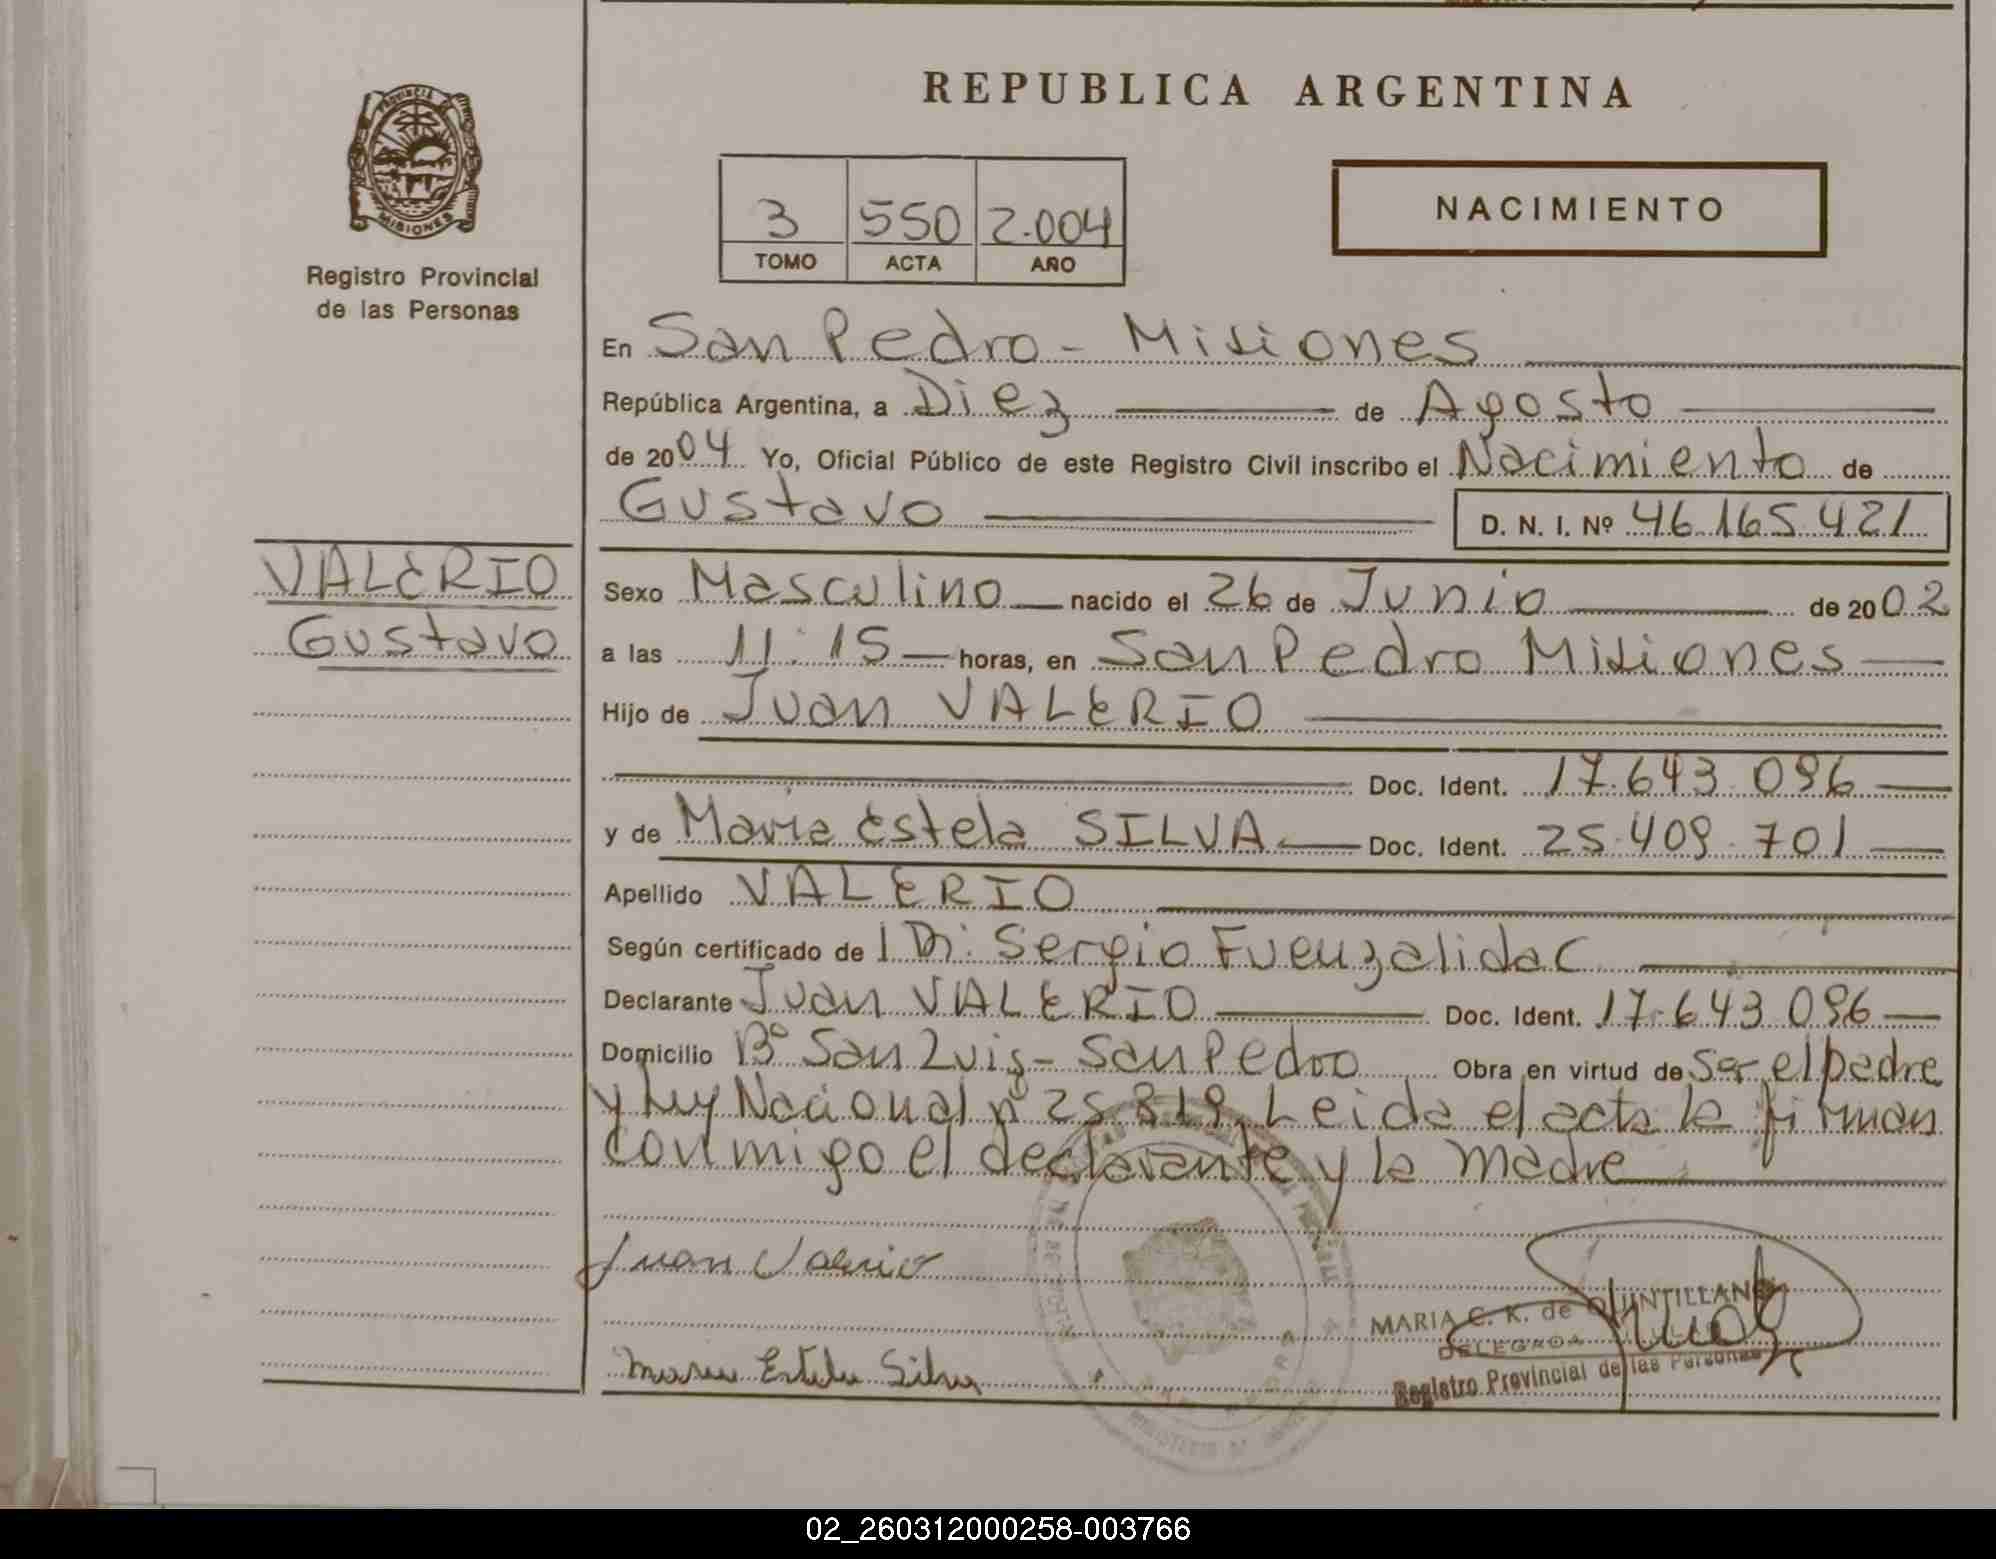 REPUBLICA ARGENTINA
PROVINCIA DE
MISIONES
Registro Provincial
de las Personas
3 550 2.004
TOMO ACTA AÑO
NACIMIENTO
En San Pedro - Misiones
República Argentina, a Diez de Agosto
de 2004 Yo, Oficial Público de este Registro Civil inscribo el Nacimiento de
Gustavo D. N. I. Nº 46.165.421
VALERIO
Gustavo
Sexo Masculino nacido el 26 de Junio de 2002
a las 11:15 horas, en San Pedro Misiones
Hijo de Juan VALERIO
Doc. Ident. 17.643.096
y de Maria Estela SILVA Doc. Ident. 25.409.701
Apellido VALERIO
Según certificado de 1 Dr: Sergio Fuenzalida C
Declarante Juan VALERIO Doc. Ident. 17.643.096
Domicilio Bº San Luis - San Pedro Obra en virtud de Ser el padre
y Ley Nacional nº 25.819. Leida el acta la firman
conmigo el declarante y la madre
Juan Valerio
MARIA C. K. de QUINTILLAN
DELEGADA
Maria Estela Silva
Registro Provincial de las Personas
02_260312000258-003766